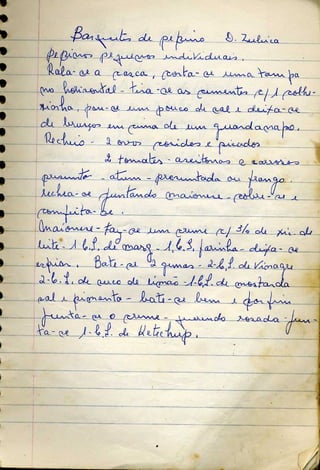 Barquetes de pepino D. Zulmira
pepinos pequenos individuais.
Rala-se a casca, corta-se uma tampa
no horizontal - tira-se as sementes c/ 1 colhe-
rzinha, poen-se um pouco de sal e deixa-se
de bruços em cima de um guardanapo.
Recheio - 2 ovos cosidos e picados
2 tomates - azeitonas e
presunto - atum - presuntada ou frango
rechea-se juntando maionese - cobre-se e
confeita-se.
Maionese - faz-se um creme c/ 3/6 de xic. de
leite - 1 b.S. de marg - 1, b.S. farinha - deixa-se
esfriar. Bate-se 2 gemas - 2-b.S. de Vinagre
2-b.S. de suco de limão - 1-b.S. de mostarda
sal e pimenta - bate-se bem e por fim
junta-se o creme - querendo rosada - jun-
ta-se 1-b.S. de Ketschup.